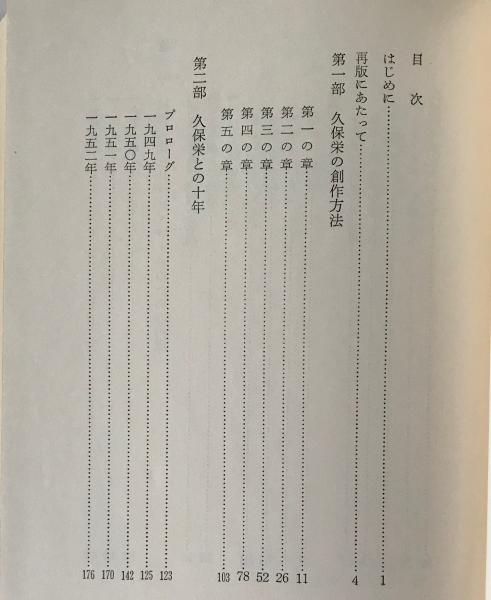 目次
はじめに……………………1
再版にあたって……………………4
第一部 久保栄の創作方法
第一の章……………………11
第二の章……………………26
第三の章……………………52
第四の章……………………78
第五の章……………………103
第二部 久保栄との十年
プロローグ……………………123
一九四九年……………………125
一九五〇年……………………142
一九五一年……………………170
一九五二年……………………176